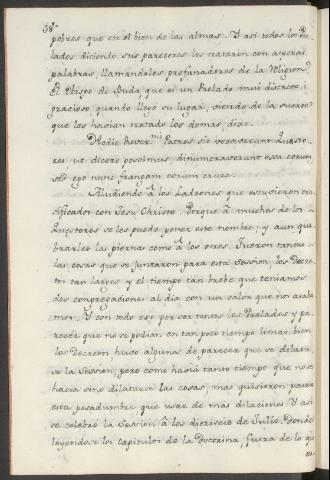 58
pobres que en el bien de las almas. Y asi todos los Pre-
lados diciendo sus pareceres los trataron con asperas
palabras, llamandoles profanadores de la Religion.
El Obispo de Buda, que es un Prelado mui discreto i
gracioso, quando llegó su lugar, viendo de la suerte
que les havian tratado los demas, dixo.
Hodie Rever.mi Patres sic vexaverunt Quæsto-
res ut dicere possimus, dinumeraverunt ossa eorum
sed ego nunc frangam eorum crura.
Aludiendo à los Ladrones que estuvieron cru-
cificados con Jesu Christo. Porque à muchos de los
Questores se les puede poner este nombre, y aun que-
brarles las piernas como à los otros. Fueron tantas
las cosas que se juntaron para esta Session, los Decre-
tos tan largos y el tiempo tan brebe que teniamos
dos congregaciones al dia con un calor que nos asaba-
mos. Y con todo eso por ser tantos los Prelados y pa-
recer que no se podian en tan poco tiempo limar bien
los Decretos huvo algunos de parecer que se dilata-
se la Session, pero como hasta tanto tiempo que no se
hacia sino dilatarse las cosas, mas quisieron pasar
esta pesadumbre que usar de mas dilaciones. Y asi
se celebró la Session à los dieziseis de Julio. Donde
leyendose los capitulos de la Doctrina, fuera de lo que